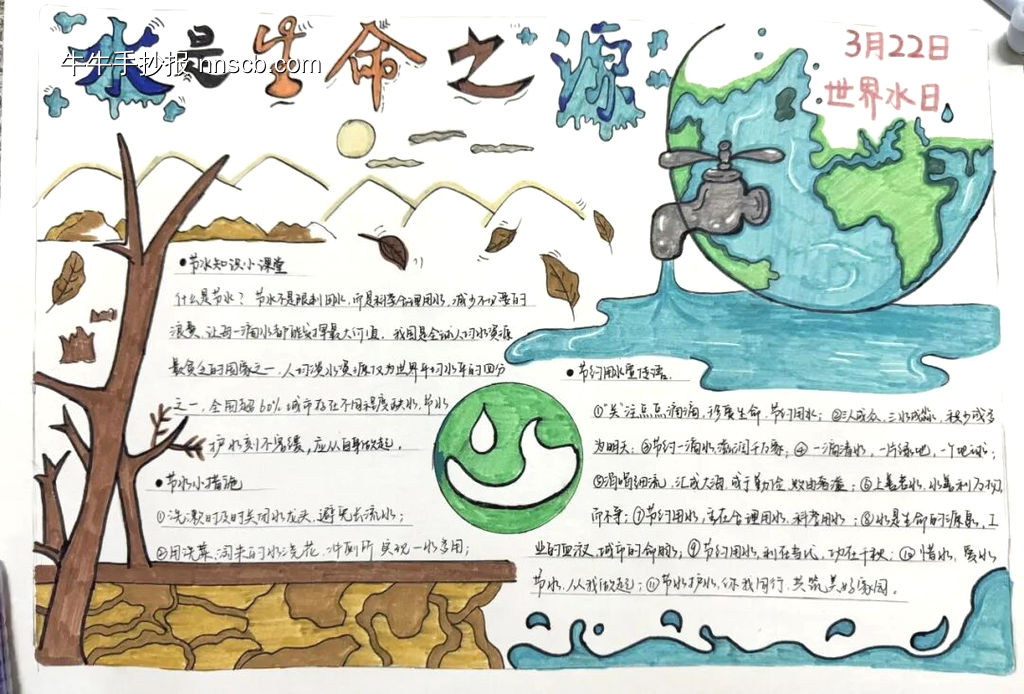 水是生命之源
牛牛手抄报 nnscb.com
3月22日
世界水日
●节水知识小课堂
什么是节水？节水不是限制用水，而是科学合理用水，减少不必要的
浪费，让每一滴水都能发挥最大价值。我国是全球人均水资源
最贫乏的国家之一，人均淡水资源仅为世界平均水平的四分
之一，全国超60%城市存在不同程度缺水，节水
护水刻不容缓，应从自身做起。
●节水小措施
①洗漱时及时关闭水龙头，避免长流水；
②用洗菜、淘米的水浇花、冲厕所，实现一水多用；
●节约用水宣传语
①"关"注点点滴滴，珍爱生命，节约用水；②三人成众，三水成淼，积少成多
为明天；③节约一滴水，滋润千万家；④一滴清水，一片绿地，一个地球；
⑤涓涓细流，汇成大海，成于勤俭，败由奢溢；⑥上善若水，水善利万物
而不争；⑦节约用水，重在合理用水，科学用水；⑧水是生命的源泉，工
业的血液，城市的命脉；⑨节约用水，利在当代，功在千秋；⑩惜水，爱水
节水，从我做起；⑪节水护水，你我同行，共筑美好家园。